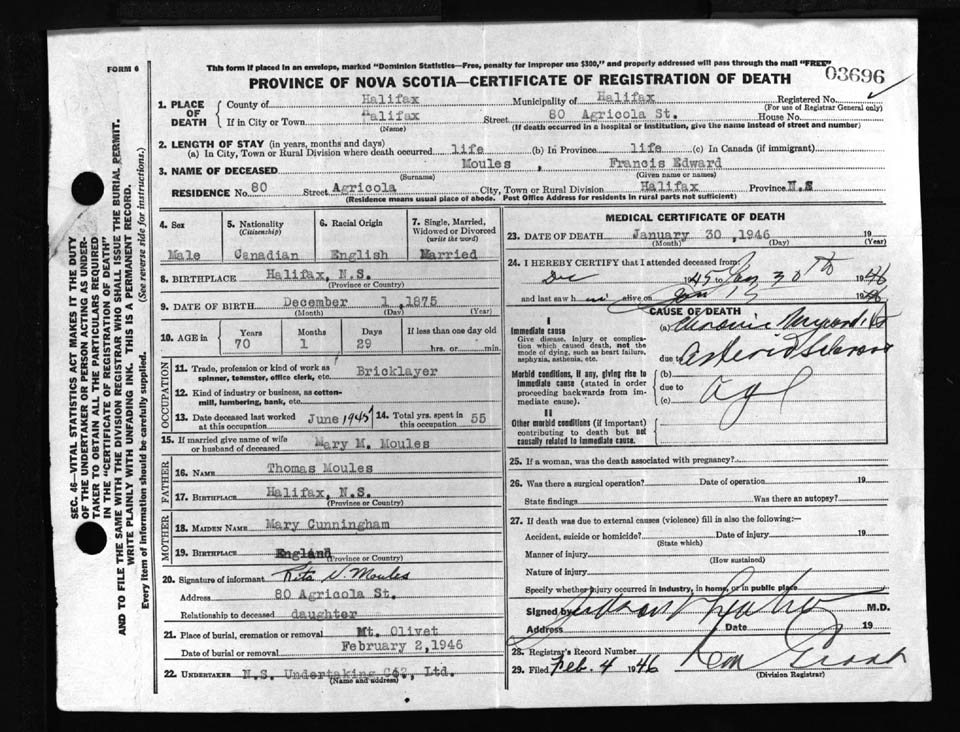 FORM 6
This form if placed in an envelope, marked "Dominion Statistics—Free, penalty for improper use $300," and properly addressed will pass through the mail "FREE"
PROVINCE OF NOVA SCOTIA—CERTIFICATE OF REGISTRATION OF DEATH
03696
1. PLACE OF DEATH
County of Halifax Municipality of Halifax Registered No.
(For use of Registrar General only)
If in City or Town Halifax Street 80 Agricola St. House No.
(Name) (If death occurred in a hospital or institution, give the name instead of street and number)
2. LENGTH OF STAY (in years, months and days)
(a) In City, Town or Rural Division where death occurred life (b) In Province life (c) In Canada (if immigrant)
3. NAME OF DECEASED Moules, Francis Edward
(Surname) (Given name or names)
RESIDENCE No. 80 Street Agricola City, Town or Rural Division Halifax Province N.S
(Residence means usual place of abode. Post Office Address for residents in rural parts not sufficient)
4. Sex 5. Nationality (Citizenship) 6. Racial Origin 7. Single, Married, Widowed or Divorced (write the word)
Male Canadian English Married
8. BIRTHPLACE Halifax, N.S.
(Province or Country)
9. DATE OF BIRTH December 1, 1875
(Month) (Day) (Year)
10. AGE in Years Months Days If less than one day old
70 1 29 hrs. or min.
OCCUPATION
11. Trade, profession or kind of work as spinner, teamster, office clerk, etc. Bricklayer
12. Kind of industry or business, as cotton-mill, lumbering, bank, etc.
13. Date deceased last worked at this occupation June 1945 14. Total yrs. spent in this occupation 55
15. If married give name of wife or husband of deceased Mary M. Moules
FATHER
16. NAME Thomas Moules
17. BIRTHPLACE Halifax, N.S.
(Province or Country)
MOTHER
18. MAIDEN NAME Mary Cunningham
19. BIRTHPLACE England
(Province or Country)
20. Signature of informant Rita V. Moules
Address 80 Agricola St.
Relationship to deceased daughter
21. Place of burial, cremation or removal Mt. Olivet
Date of burial or removal February 2, 1946
22. UNDERTAKER N.S. Undertaking Co., Ltd.
(Name and address)
MEDICAL CERTIFICATE OF DEATH
23. DATE OF DEATH January 30, 1946 19
(Month) (Day) (Year)
24. I HEREBY CERTIFY that I attended deceased from:
Dec 1945 to Jan 30th 1946
and last saw h im alive on Jan 17 1946
CAUSE OF DEATH
I
Immediate cause
Give disease, injury or complication which caused death, not the mode of dying, such as heart failure, asphyxia, asthenia, etc.
(a) Chronic
due to
Morbid conditions, if any, giving rise to immediate cause (stated in order proceeding backwards from immediate cause).
(b)
due to
(c) age
II
Other morbid conditions (if important) contributing to death but not causally related to immediate cause.
25. If a woman, was the death associated with pregnancy?
26. Was there a surgical operation? Date of operation 19
State findings Was there an autopsy?
27. If death was due to external causes (violence) fill in also the following:—
Accident, suicide or homicide? Date of injury 19
(State which)
Manner of injury
(How sustained)
Nature of injury
Specify whether injury occurred in industry, in home, or in public place
Signed by M.D.
Address Date 19
28. Registrar's Record Number
29. Filed Feb. 4 1946
(Division Registrar)
SEC. 46—VITAL STATISTICS ACT MAKES IT THE DUTY
OF THE UNDERTAKER OR PERSON ACTING AS UNDER-
TAKER TO OBTAIN ALL THE PARTICULARS REQUIRED
IN THE "CERTIFICATE OF REGISTRATION OF DEATH"
AND TO FILE THE SAME WITH THE DIVISION REGISTRAR WHO SHALL ISSUE THE BURIAL PERMIT.
WRITE PLAINLY WITH UNFADING INK. THIS IS A PERMANENT RECORD.
Every item of information should be carefully supplied. (See reverse side for instructions.)